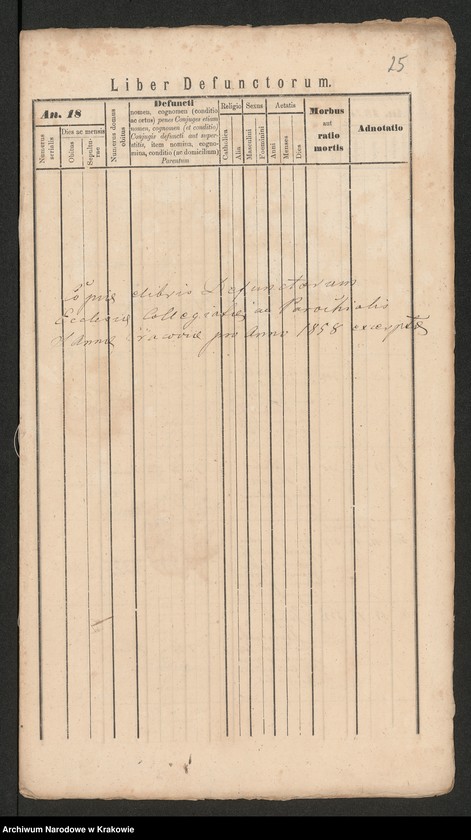 25
Liber Defunctorum.
An. 18
Numerus serialis
Dies ac mensis
Obitus
Sepulturae
Numerus domus obitus
Defuncti
nomen, cognomen (conditio
ac ortus) penes Conjuges etiam
nomen, cognomen (et conditio)
Conjugis defuncti aut super-
stitis, item nomina, cogno-
mina, conditio (ac domicilium)
Parentum
Religio
Catholica
Alia
Sexus
Masculini
Foeminini
Aetatis
Anni
Menses
Dies
Morbus
aut
ratio
mortis
Adnotatio
Copia e libris Defunctorum
Ecclesiae Collegiatae ac Parochialis
S Annae Cracoviae pro Anno 1858 excerptae
Archiwum Narodowe w Krakowie